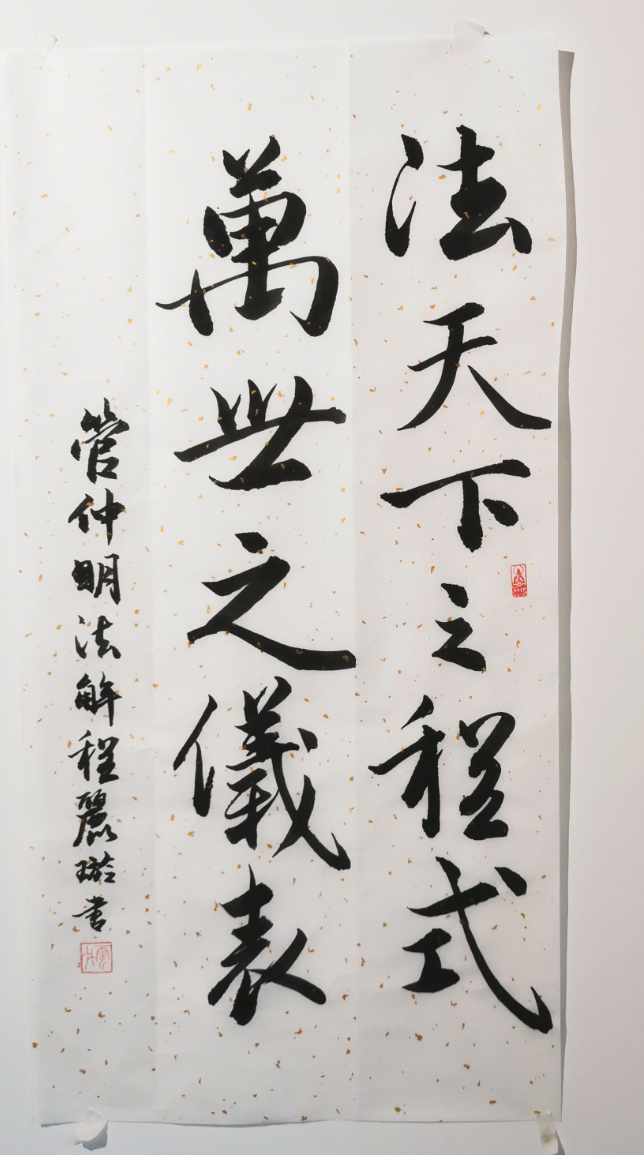 法天下之程式
萬世之儀表
管仲明法解程麗璇书